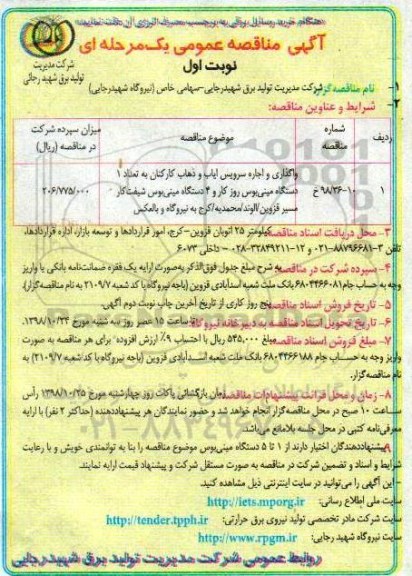 هنگام خرید وسایل برقی به برچسب مصرف انرژی آن دقت نمایید
آگهی مناقصه عمومی یک مرحله ای
نوبت اول
شرکت مدیریت
تولید برق شهید رجائی
۱- نام مناقصه‌گزار: شرکت مدیریت تولید برق شهیدرجایی-سهامی خاص (نیروگاه شهیدرجایی)
۲- شرایط و عناوین مناقصه:
ردیف
شماره مناقصه
موضوع مناقصه
میزان سپرده شرکت در مناقصه (ریال)
۱
۹۸/۳۶-۱۰ خ
واگذاری و اجاره سرویس ایاب و ذهاب کارکنان به تعداد ۱
دستگاه مینی‌بوس روز کار و ۴ دستگاه مینی‌بوس شیفت‌کار
مسیر قزوین/الوند/محمدیه/کرج به نیروگاه و بالعکس
۲۰۶/۷۷۵/۰۰۰
۳- محل دریافت اسناد مناقصه: کیلومتر ۲۵ اتوبان قزوین-کرج، امور قراردادها و توسعه بازار، اداره قراردادها،
تلفن ۳-۸۸۷۹۶۶۸۱-۰۲۱ و ۱۲-۳۲۸۴۹۲۱۱-۰۲۸ - داخلی ۶۰۷۳
۴- سپرده شرکت در مناقصه: به شرح مبلغ جدول فوق‌الذکر به‌صورت ارایه یک فقره ضمانت‌نامه بانکی یا واریز
وجه به حساب جام ۶۸۰۴۴۶۶۰۸۱ بانک ملت شعبه اسدآبادی قزوین (باجه نیروگاه با کد شعبه ۲۱۰۹/۷ به نام مناقصه‌گزار).
۵- تاریخ فروش اسناد مناقصه: پنج روز کاری از تاریخ آخرین چاپ نوبت دوم آگهی.
۶- تاریخ تحویل اسناد مناقصه به دبیرخانه نیروگاه: تا ساعت ۱۵ عصر روز سه شنبه مورخ ۱۳۹۸/۱۰/۲۴.
۷- مبلغ فروش اسناد مناقصه: مبلغ ۵۴۵,۰۰۰ ریال با احتساب ۹٪ ارزش افزوده برای هر مناقصه به صورت
واریز وجه به حساب جام ۶۸۰۴۴۶۶۱۸۸ بانک ملت شعبه اسدآبادی قزوین (باجه نیروگاه با کد شعبه ۲۱۰۹/۷) به
نام مناقصه‌گزار.
۸- زمان و محل قرائت پیشنهادات مناقصه: زمان بازگشایی پاکات روز چهارشنبه مورخ ۱۳۹۸/۱۰/۲۵ رأس
ساعت ۱۰ صبح در محل مناقصه‌گزار انجام خواهد شد و حضور نمایندگان هر پیشنهاددهنده (حداکثر ۲ نفر) با ارایه
معرفی‌نامه کتبی در محل جلسه بلامانع می‌باشد.
۹- پیشنهاددهندگان اختیار دارند از ۱ تا ۵ دستگاه مینی‌بوس موضوع مناقصه را بنا به توانمندی خویش و با رعایت
شرایط و اسناد و تضمین شرکت در مناقصه به صورت مستقل شرکت و پیشنهاد قیمت ارایه نمایند.
-این آگهی را می‌توانید در سایت اینترنتی ذیل مشاهده کنید.
سایت ملی اطلاع رسانی: http://iets.mporg.ir
سایت شرکت مادر تخصصی تولید نیروی برق حرارتی: http://tender.tpph.ir
سایت نیروگاه شهید رجایی: http://www.rpgm.ir
روابط عمومی شرکت مدیریت تولید برق شهیدرجایی